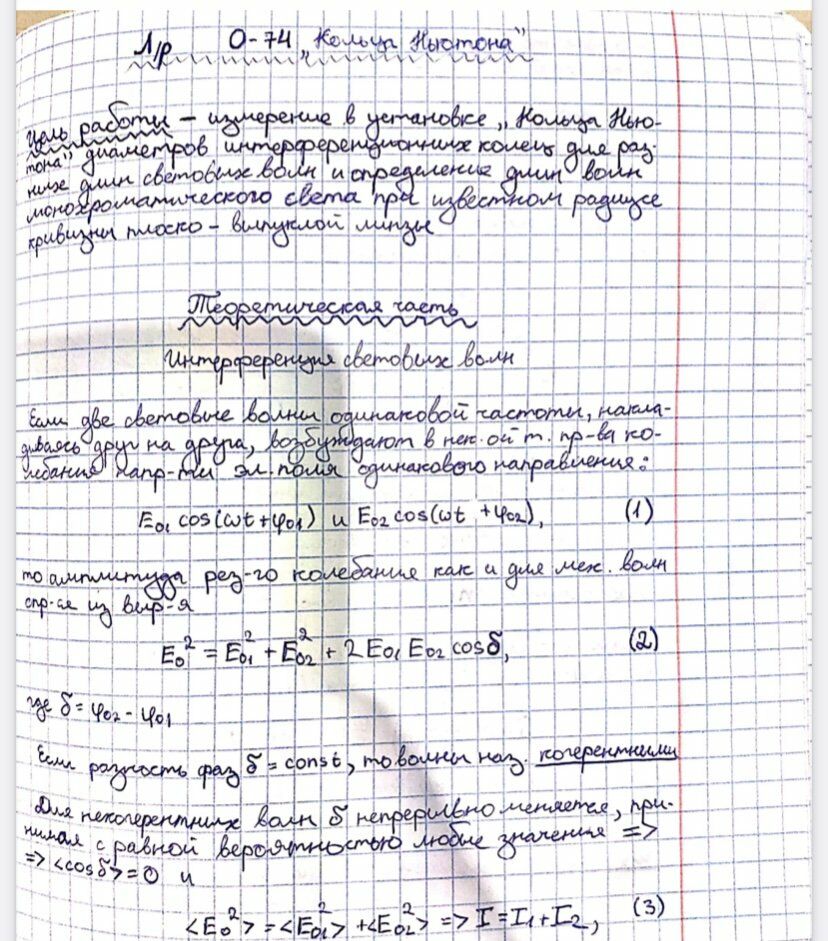 Л/р О-74 „Кольца Ньютона"
Цель работы – измерение в установке „Кольца Нью-
тона" диаметров интерференционных колец для раз-
ных длин световых волн и определение длин волн
монохроматического света при известном радиусе
кривизны плоско-выпуклой линзы
Теоретическая часть
Интерференция световых волн
Если две световые волны одинаковой частоты, накла-
дываясь друг на друга, возбуждают в нек.ой т. пр-ва ко-
лебания напр-ти эл. поля одинакового направления:
E₀₁ cos(ωt+φ₀₁) и E₀₂ cos(ωt +φ₀₂), (1)
то амплитуда рез-го колебания как и для мех. волн
опр-ся из выр-я
E₀² = E₀₁² + E₀₂² + 2E₀₁ E₀₂ cosδ, (2)
где δ = φ₀₂ - φ₀₁
Если разность фаз δ = const, то волны наз. когерентными
Для некогерентных волн δ непрерывно меняется, при-
нимая с равной вероятностью любые значения =>
=> <cosδ> = 0 и
<E₀²> = <E₀₁²> + <E₀₂²> => I = I₁ + I₂, (3)